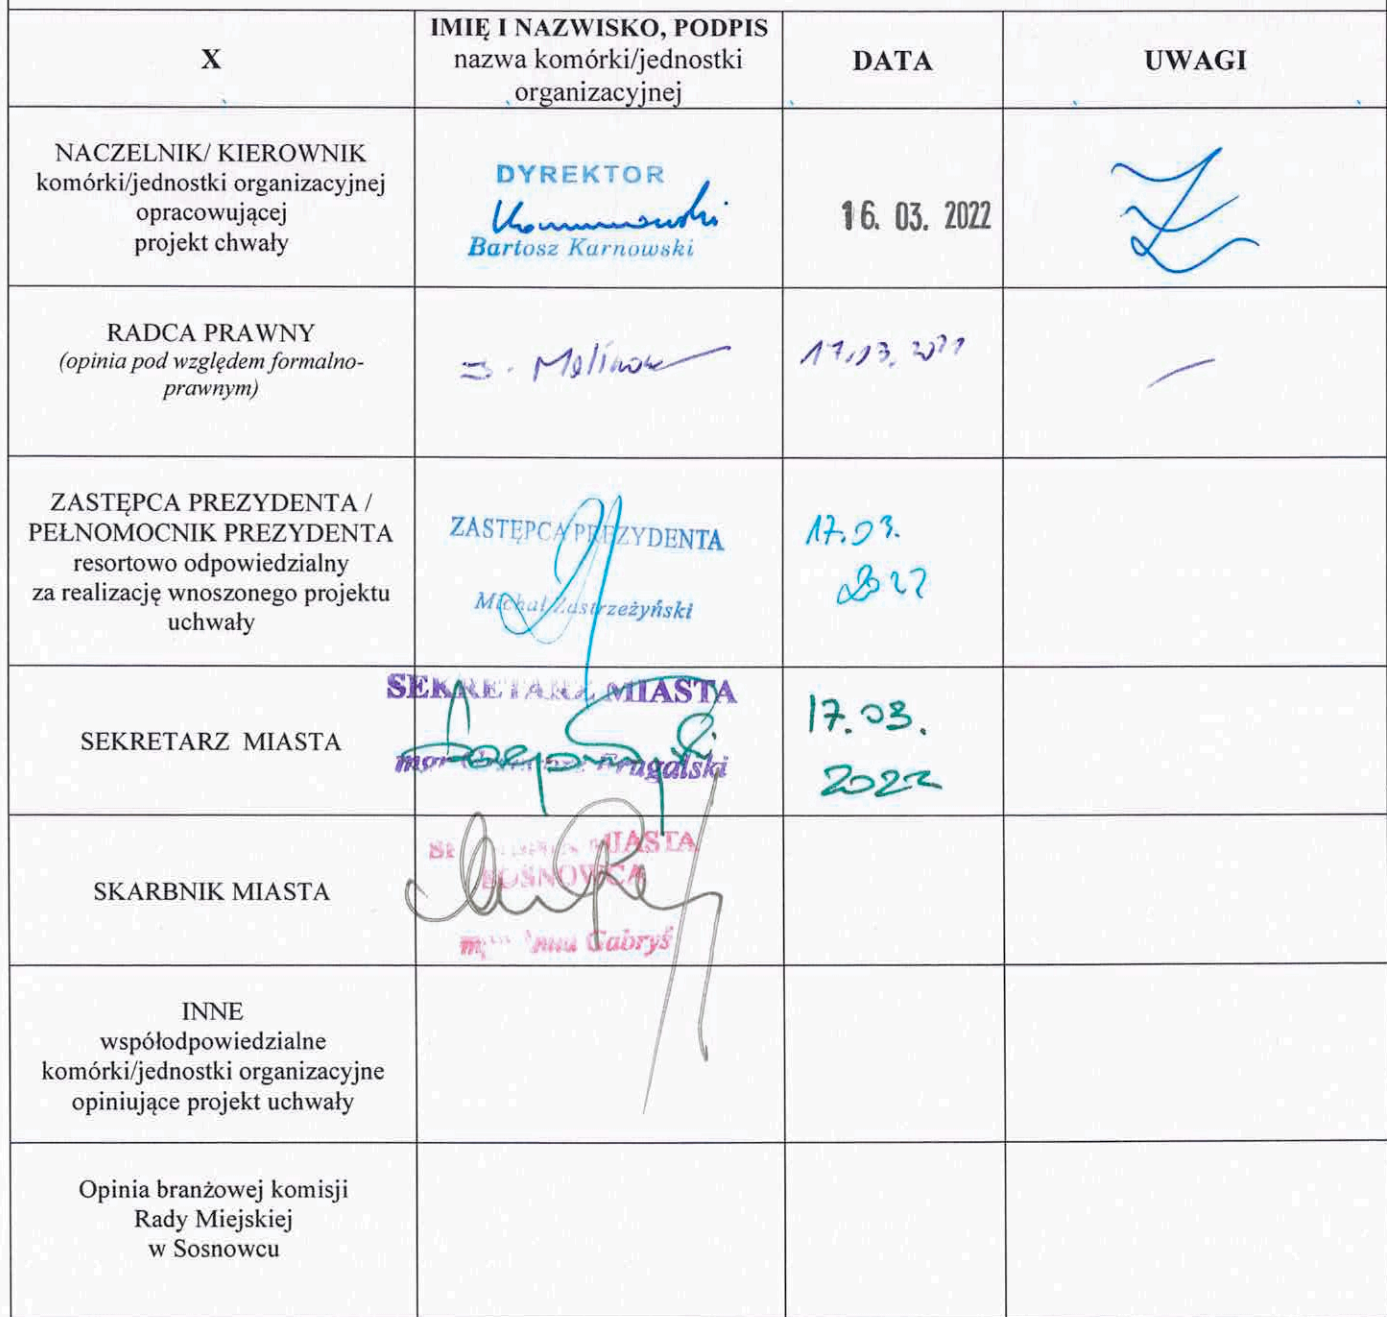 X
IMIĘ I NAZWISKO, PODPIS
nazwa komórki/jednostki
organizacyjnej
DATA
UWAGI
NACZELNIK/ KIEROWNIK
komórki/jednostki organizacyjnej
opracowującej
projekt chwały
DYREKTOR
Bartosz Karnowski
16. 03. 2022
RADCA PRAWNY
(opinia pod względem formalno-
prawnym)
ZASTĘPCA PREZYDENTA /
PEŁNOMOCNIK PREZYDENTA
resortowo odpowiedzialny
za realizację wnoszonego projektu
uchwały
ZASTĘPCA PREZYDENTA
Michał Zastrzeżyński
17.03.
2022
SEKRETARZ MIASTA
SEKRETARZ MIASTA
17.03.
2022
SKARBNIK MIASTA
MIASTA
SOSNOWCA
Gabryś
INNE
współodpowiedzialne
komórki/jednostki organizacyjne
opiniujące projekt uchwały
Opinia branżowej komisji
Rady Miejskiej
w Sosnowcu